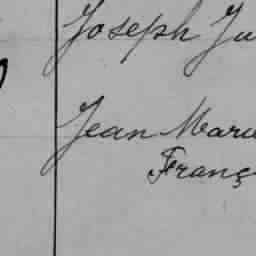 Joseph Ju
Jean Marie
Franç